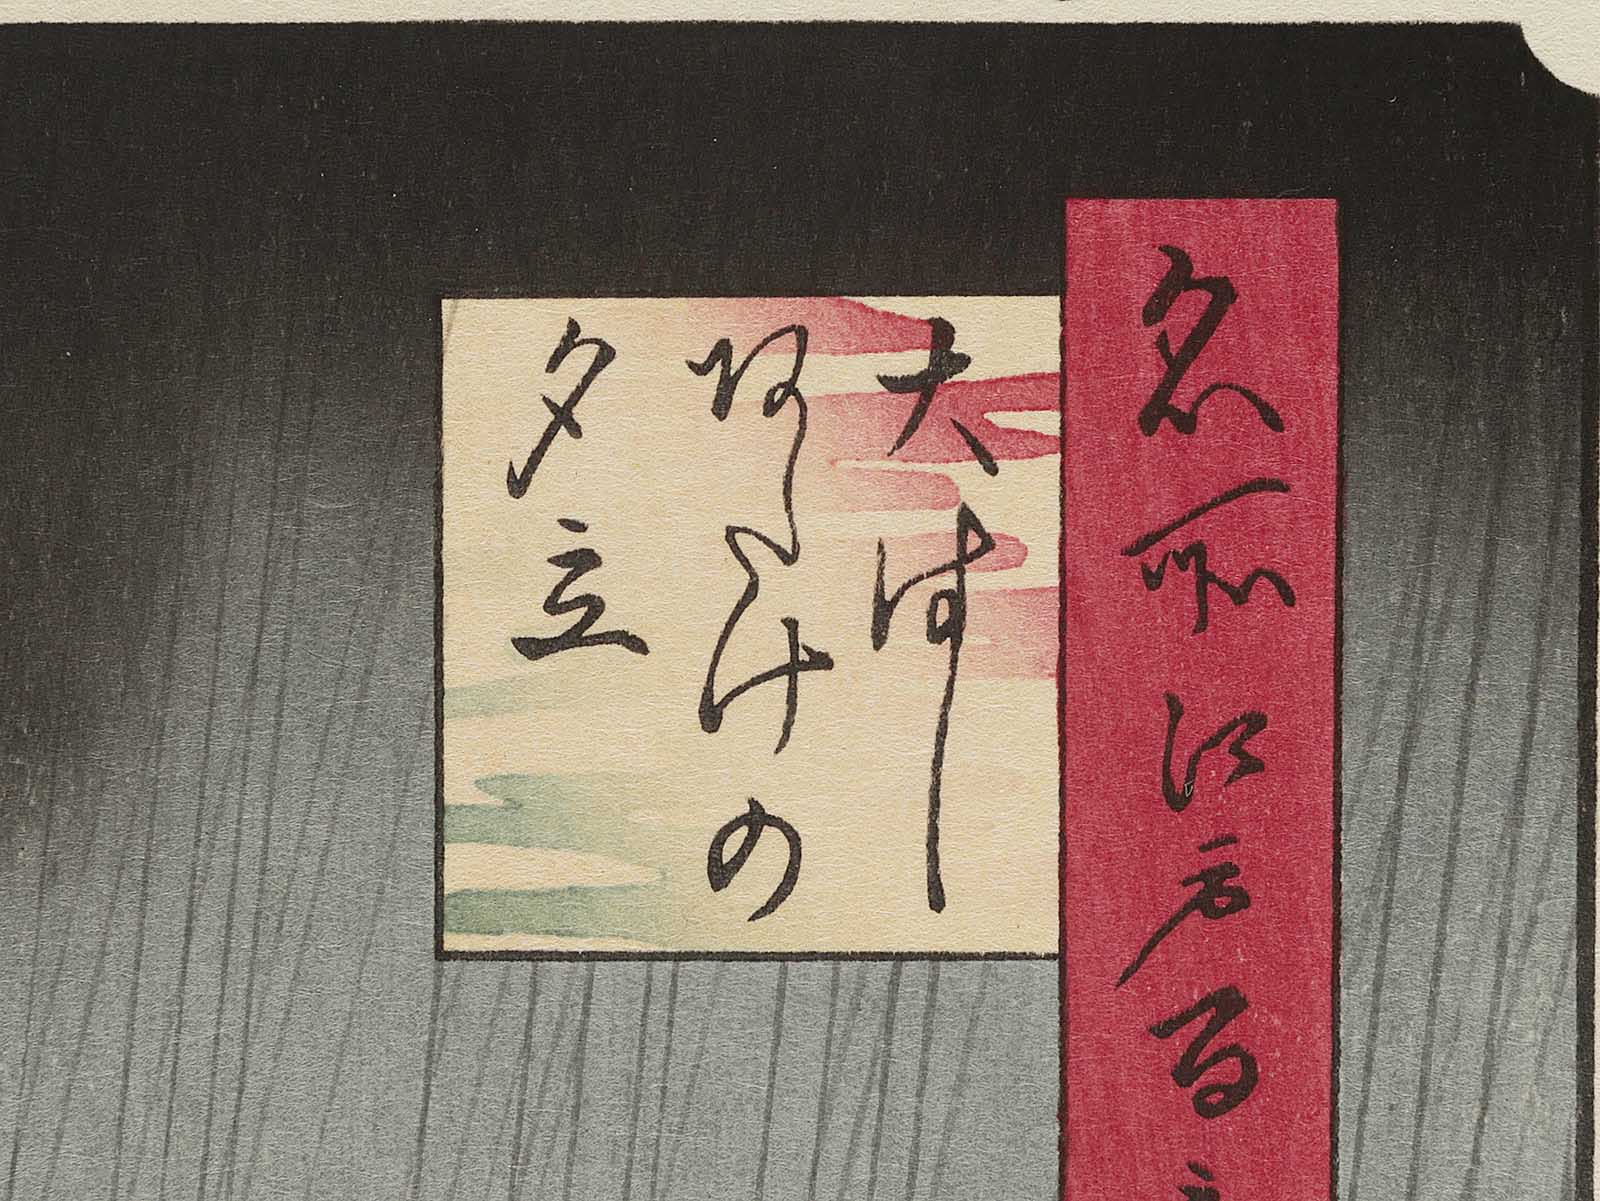 名所江戸百
大はし
あたけの
夕立